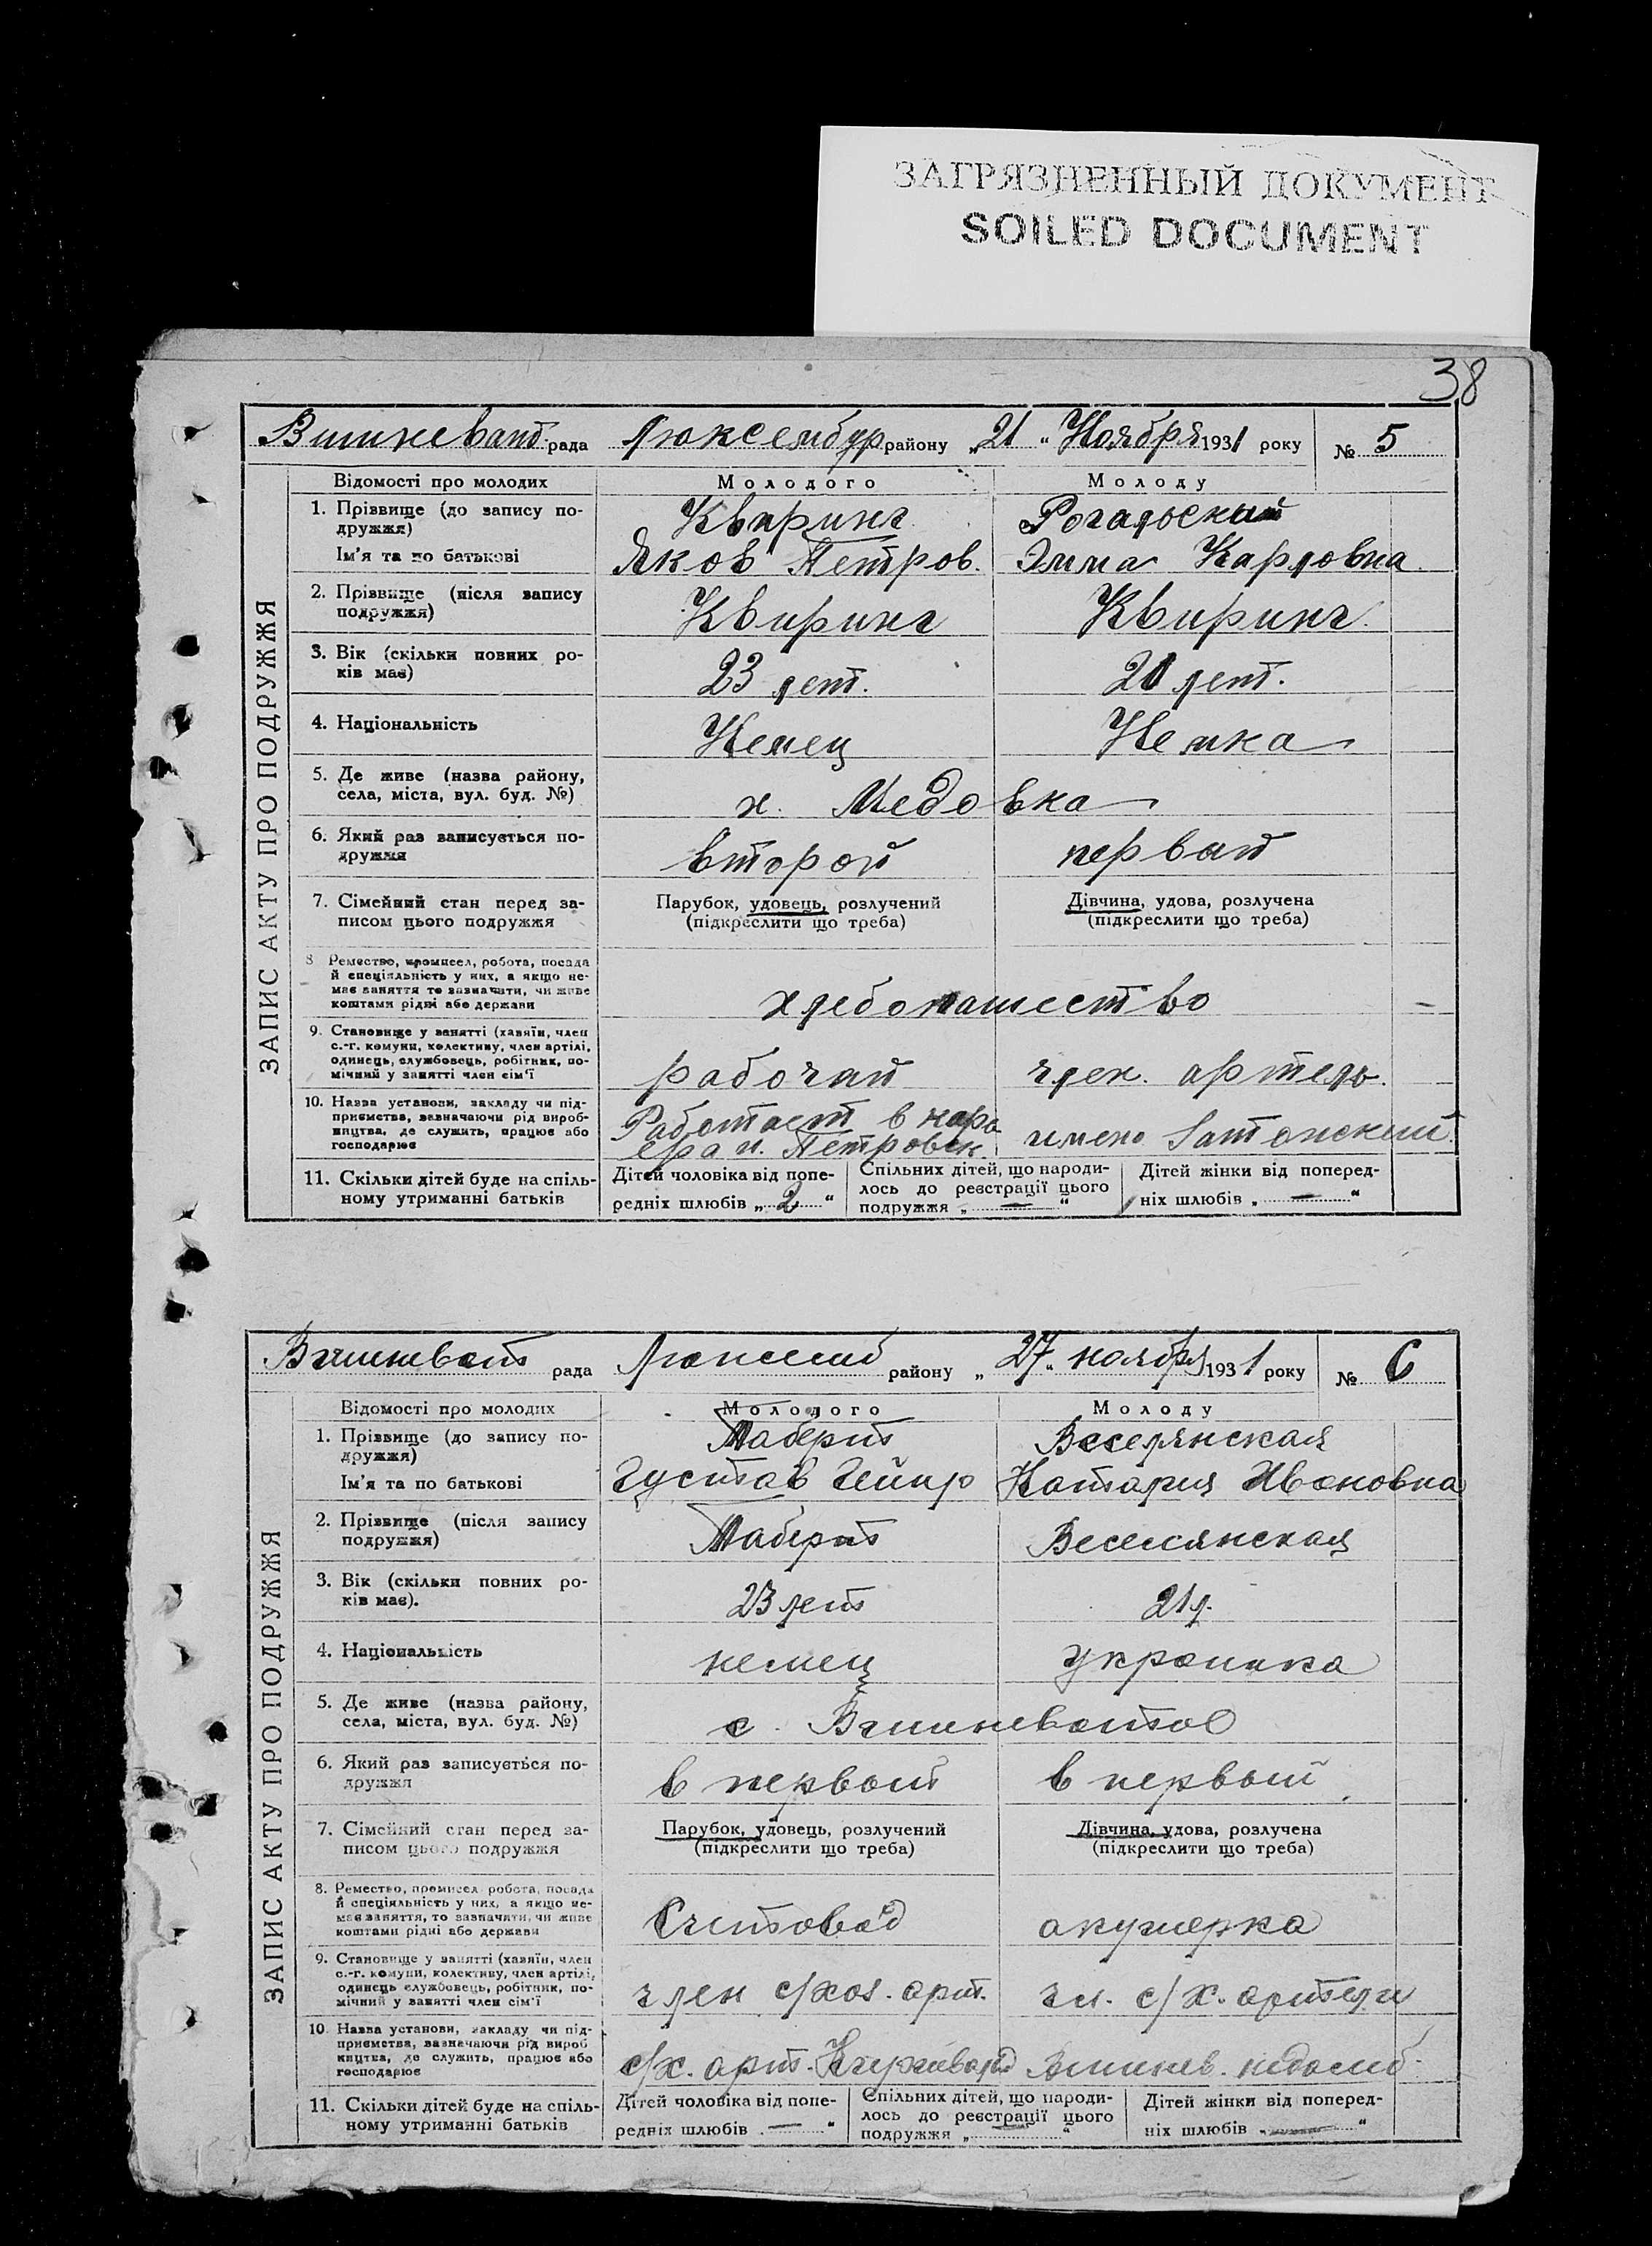 ЗАГРЯЗНЕННЫЙ ДОКУМЕНТ
SOILED DOCUMENT
38
Вишневат. рада Люксембур району „21" Ноября 1931 року № 5
ЗАПИС АКТУ ПРО ПОДРУЖЖЯ
Відомості про молодих Молодого Молоду
1. Прізвище (до запису по-
дружжя) Квиринг Рогальский
Ім'я та по батькові Яков Петров. Эмма Карловна
2. Прізвище (після запису
подружжя) Квиринг Квиринг
3. Вік (скільки повних ро-
ків має) 23 лет. 20 лет.
4. Національність Немец Немка
5. Де живе (назва району,
села, міста, вул. буд. №) х. Медовка
6. Який раз записується по-
дружжя второй первый
7. Сімейний стан перед за-
писом цього подружжя
Парубок, удовець, розлучений
(підкреслити що треба)
Дівчина, удова, розлучена
(підкреслити що треба)
8. Ремество, промисел, робота, посада
й спеціяльність у них, а якщо не-
має заняття то зазначити, чи живе
коштами рідні або держави хлебопашество
9. Становище у занятті (хазяїн, член
с.-г. комуни, колективу, член артілі,
одинець, службовець, робітник, по-
мічний у занятті член сім'ї рабочий член. артель.
10. Назва установи, закладу чи під-
приємства, зазначаючи рід вироб-
ництва, де служить, працює або
господарює
Работает в
Петровск.
имено
11. Скільки дітей буде на спіль-
ному утриманні батьків
Дітей чоловіка від попе-
редніх шлюбів „ 2 "
Спільних дітей, що народи-
лось до реєстрації цього
подружжя „ — "
Дітей жінки від поперед-
ніх шлюбів „ — "
Вишневат рада Люксемб району „27" ноября 1931 року № 6
ЗАПИС АКТУ ПРО ПОДРУЖЖЯ
Відомості про молодих Молодого Молоду
1. Прізвище (до запису по-
дружжя) Таберт Веселянская
Ім'я та по батькові Густав Наталия Ивановна
2. Прізвище (після запису
подружжя) Таберт Веселянская
3. Вік (скільки повних ро-
ків має). 23 лет 21 л.
4. Національність немец украинка
5. Де живе (назва району,
села, міста, вул. буд. №) с. Вишневатое
6. Який раз записується по-
дружжя в первый в первый
7. Сімейний стан перед за-
писом цього подружжя
Парубок, удовець, розлучений
(підкреслити що треба)
Дівчина, удова, розлучена
(підкреслити що треба)
8. Ремество, промисел робота, посада
й спеціяльність у них, а якщо не-
має заняття, то зазначити, чи живе
коштами рідні або держави Счетовод акушерка
9. Становище у занятті (хазяїн, член
с.-г. комуни, колективу, член артілі,
одинець службовець, робітник, по-
мічний у занятті член сім'ї член с/хоз. арт. чл. с/х. артели
10. Назва установи, закладу чи під-
приємства, зазначаючи рід вироб
ництва, де служить, працює або
господарює с/х. арт. Вишнев.
11. Скільки дітей буде на спіль-
ному утриманні батьків
Дітей чоловіка від попе-
редніх шлюбів „ — "
Спільних дітей, що народи-
лось до реєстрації цього
подружжя „ — "
Дітей жінки від поперед-
ніх шлюбів „ — "